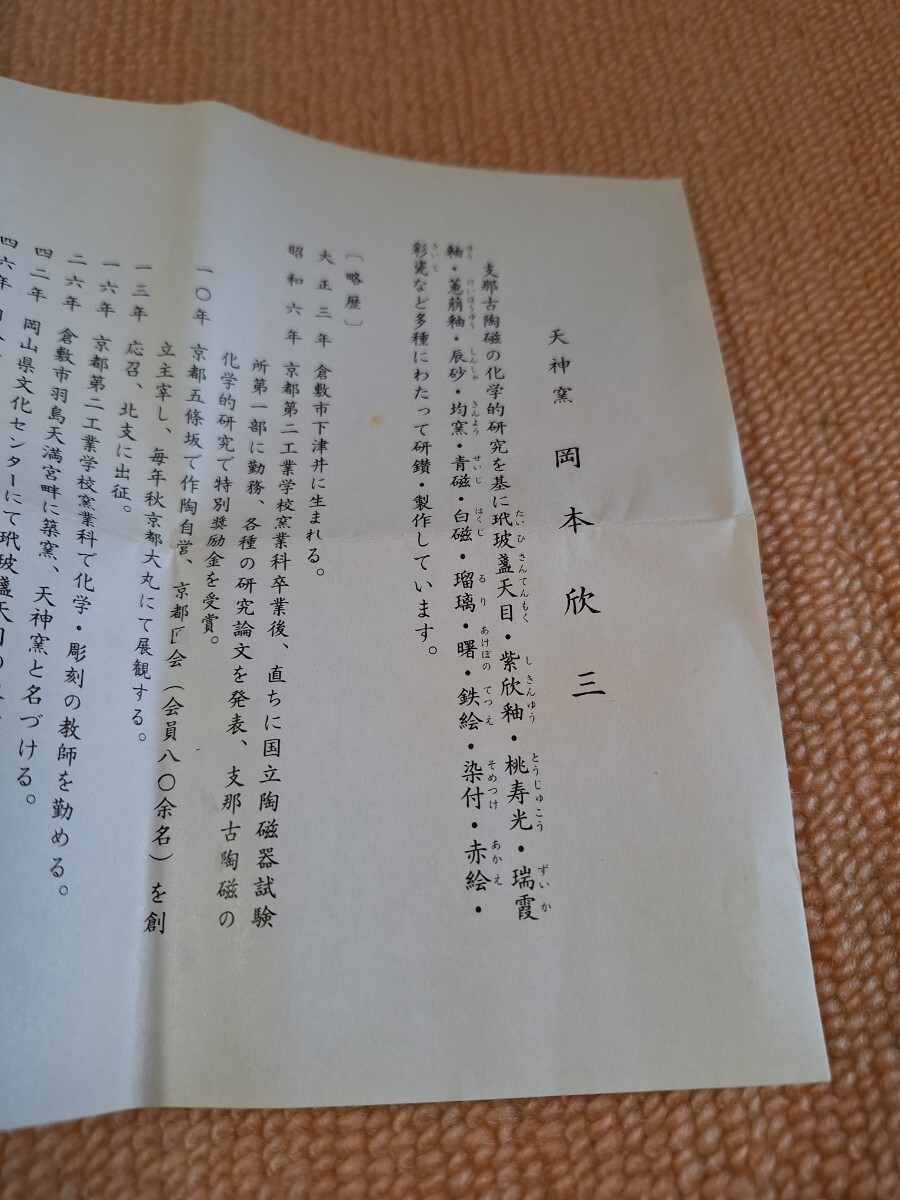 天神窯 岡本欣三
支那古陶磁の化学的研究を基に玳玻盞天目・紫欣釉・桃寿光・瑞霞
釉・蕙荊釉・辰砂・均窯・青磁・白磁・瑠璃・曙・鉄絵・染付・赤絵・
彩瓷など多種にわたって研鑽・製作しています。
〔略歴〕
大正三年 倉敷市下津井に生まれる。
昭和六年 京都第二工業学校窯業科卒業後、直ちに国立陶磁器試験
所第一部に勤務、各種の研究論文を発表、支那古陶磁の
化学的研究で特別奨励金を受賞。
一〇年 京都五條坂で作陶自営、京都匚会（会員八〇余名）を創
立主宰し、毎年秋京都大丸にて展観する。
一三年 応召、北支に出征。
一六年 京都第二工業学校窯業科で化学・彫刻の教師を勤める。
二六年 倉敷市羽島天満宮畔に築窯、天神窯と名づける。
四二年 岡山県文化センターにて玳玻盞天目の
四六年